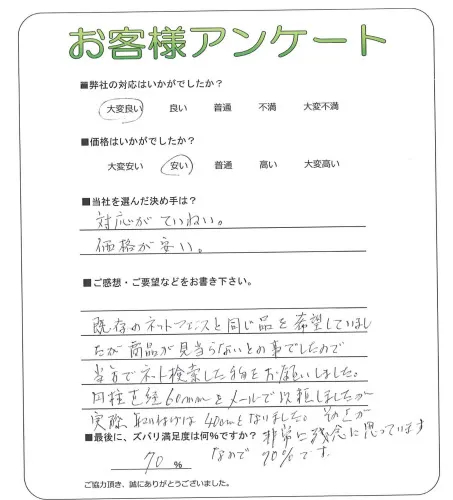 お客様アンケート
■弊社の対応はいかがでしたか？
大変良い 良い 普通 不満 大変不満
■価格はいかがでしたか？
大変安い 安い 普通 高い 大変高い
■当社を選んだ決め手は？
対応がていねい。
価格が安い。
■ご感想・ご要望などをお書き下さい。
既存のネットフェンスと同じ品を希望していまし
たが商品が見当らないとの事でしたので
当方でネット検索した物をお願いしました。
円柱直経60mmとメールで依頼しましたが
実際取り付けは40cmとなりました。 が
■最後に、ズバリ満足度は何%ですか？ 非常に残念に思っています
70 % なので 70%です。
ご協力頂き、誠にありがとうございました。